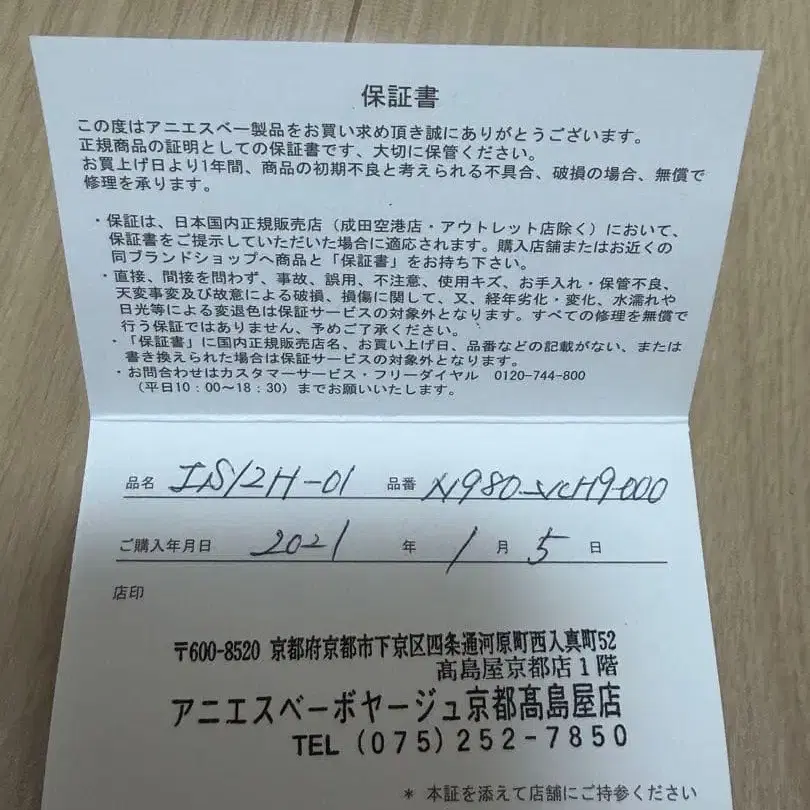 保証書
この度はアニエスベー製品をお買い求め頂き誠にありがとうございます。
正規商品の証明としての保証書です、大切に保管ください。
お買上げ日より1年間、商品の初期不良と考えられる不具合、破損の場合、無償で
修理を承ります。
・保証は、日本国内正規販売店(成田空港店・アウトレット店除く)において、
保証書をご提示していただいた場合に適応されます。購入店舗またはお近くの
同ブランドショップへ商品と「保証書」をお持ち下さい。
・直接、間接を問わず、事故、誤用、不注意、使用キズ、お手入れ・保管不良、
天変事変及び故意による破損、損傷に関して、又、経年劣化・変化、水濡れや
日光等による変退色は保証サービスの対象外となります。すべての修理を無償で
行う保証ではありません、予めご了承ください。
・「保証書」に国内正規販売店名、お買い上げ日、品番などの記載がない、または
書き換えられた場合は保証サービスの対象外となります。
・お問合わせはカスタマーサービス・フリーダイヤル 0120-744-800
(平日10:00〜18:30)までお願いいたします。
品名 IS12H-01 品番 N980-VCH9-000
ご購入年月日 2021 年 1 月 5 日
店印
〒600-8520 京都府京都市下京区四条通河原町西入真町52
髙島屋京都店1階
アニエスベーボヤージュ京都髙島屋店
TEL (075)252-7850
* 本証を添えて店舗にご持参ください